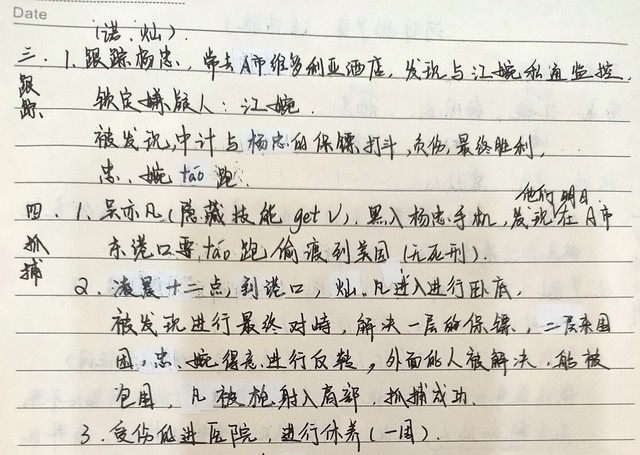 Date
(诺.灿).
三. 1. 跟踪杨忠, 常去A市维多利亚酒店, 发现与江婉私通监控.
跟踪
锁定嫌疑人: 江婉.
被发现, 中计与杨忠的保镖打斗, 负伤, 最终胜利,
忠.婉 táo 跑.
他们明日
四. 1. 吴亦凡(隐藏技能 get √). 黑入杨忠手机, 发现在A市
抓捕
东港口要 táo 跑, 偷渡到美国(无死刑).
2. 凌晨十二点, 到港口, 灿.凡进入进行卧底,
被发现进行最终对峙, 解决一层的保镖, 二层来围
困. 忠.婉得意.进行反转, 外面的人被解决. 船被
包围, 凡被枪射入肩部. 抓捕成功.
3. 受伤的进医院, 进行休养(一周).